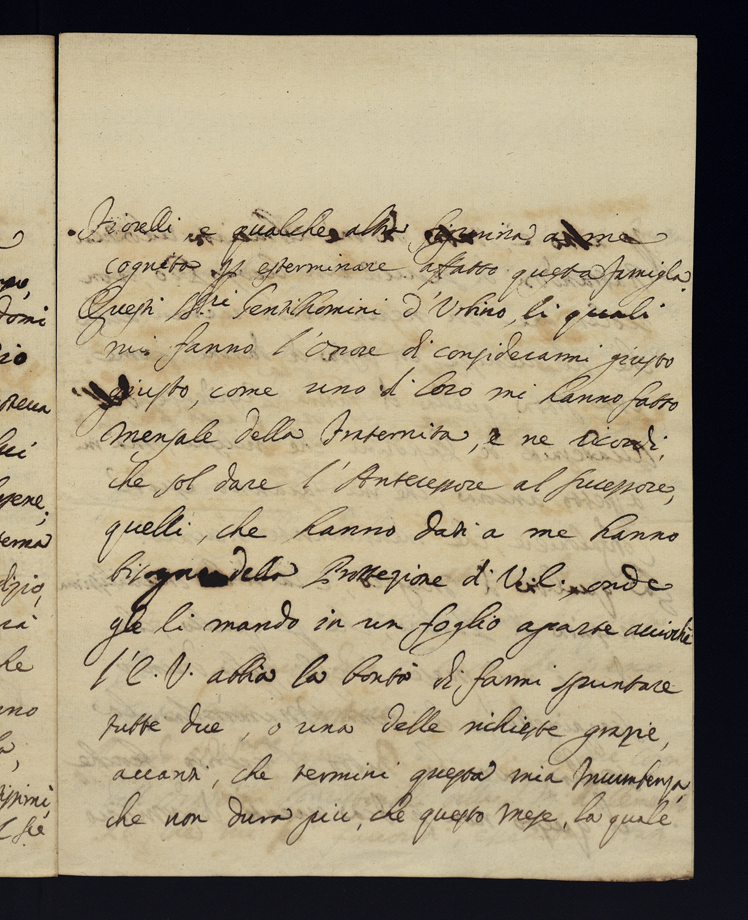 Fiorelli e qualche altra femmina a me
cognita p esterminare affatto questa famiglia
Questi SS.ri Gentilhomini d'Urbino, li quali
mi fanno l'onore di considerarmi giusto
giusto, come uno di loro mi hanno fatto
mensale della Fraternita, e ne ricordi,
che sol dare l'Antecessore al successore,
quelli, che hanno dati a me hanno
bisogno della Protezione di V.E., onde
gle li mando in un foglio aparte acciochè
l'E.V. abbia la bontà di farmi spuntare
tutte due, o una delle richieste grazie,
avanti, che termini questa mia Incumbenza,
che non dura più, che questo mese, la quale